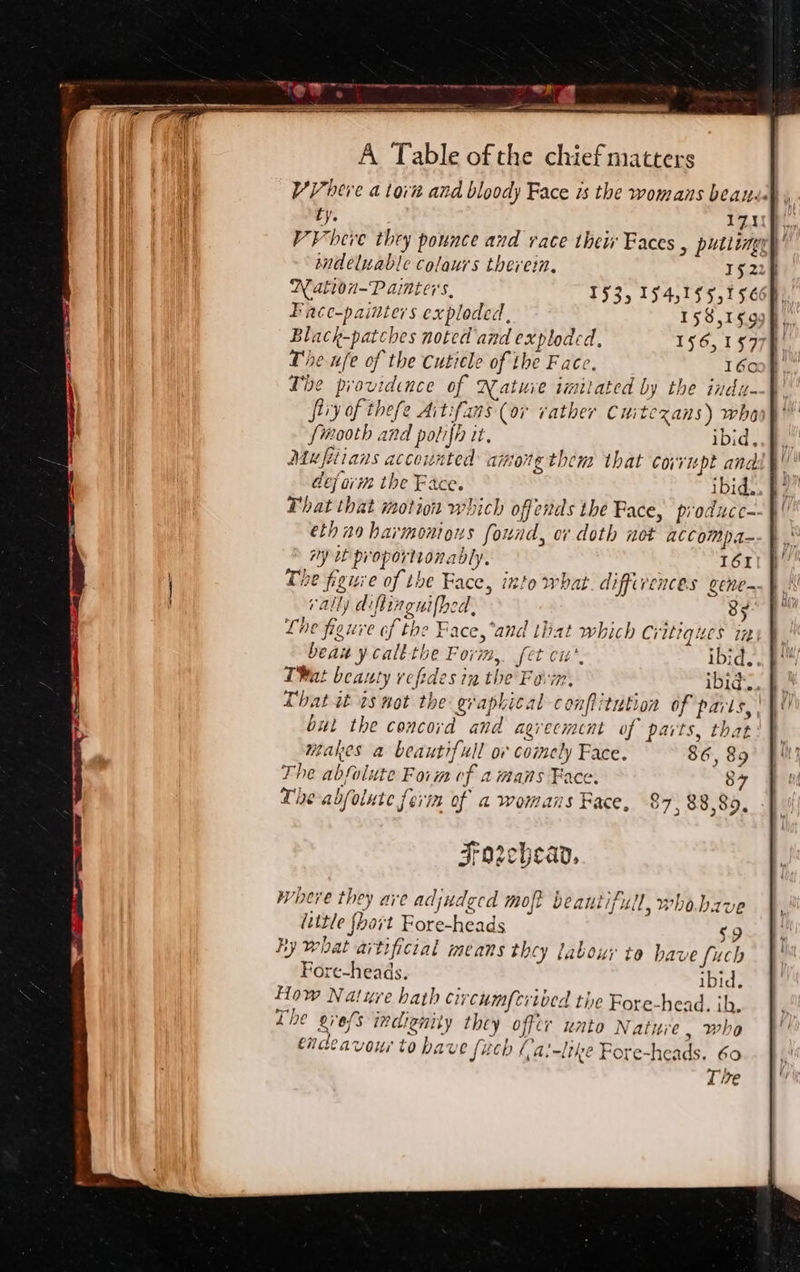 A Table of the chief matters
VVhere a torn and bloody Face is the womans beau-
ty. 171
VVhere they pounce and race their Faces, putting
indeluable colours therein. 152
Nation-Painters, 153, 154, 155, 156
Face-painters exploded, 158, 159
Black-patches noted and exploded, 156, 157
The uſe of the Cuticle of the Face. 160
The providence of Nature imitated by the indu-
ſtry of theſe Artiſans (or rather Cuitezans) who
ſmooth and poliſh it. ibid.
Muſitians accounted among them that corrupt and
deform the Face. ibid.
That that motion which offends the Face, produc-
eth no harmonious ſound, or doth not accompa-
ny it proportionably. 161
The figure of the Face, into what differences gene-
rally diſtinguiſhed, 85
The figure of the Face, and that which Critiques in
beauty call the Form, ſet out. ibid.
That beauty reſides in the Form. ibid.
That it is not the graphical conſtitution of parts,
but the concord and agreement of parts, that
makes a beautifull or comely Face. 86, 89
The abſolute Form of a mans Face. 87
The abſolute form of a womans Face, 87, 88, 89.
Forehead.
Where they are adjudged moſt beautifull, who have
little ſhort Fore-heads 59
By what artificial means they labour to have ſuch
Fore-heads. ibid.
How Nature hath circumſcribed the Fore-head. ib.
The groſs indignity they offer unto Nature, who
endeavour to have ſuch Cat-like Fore-heads. 60
The